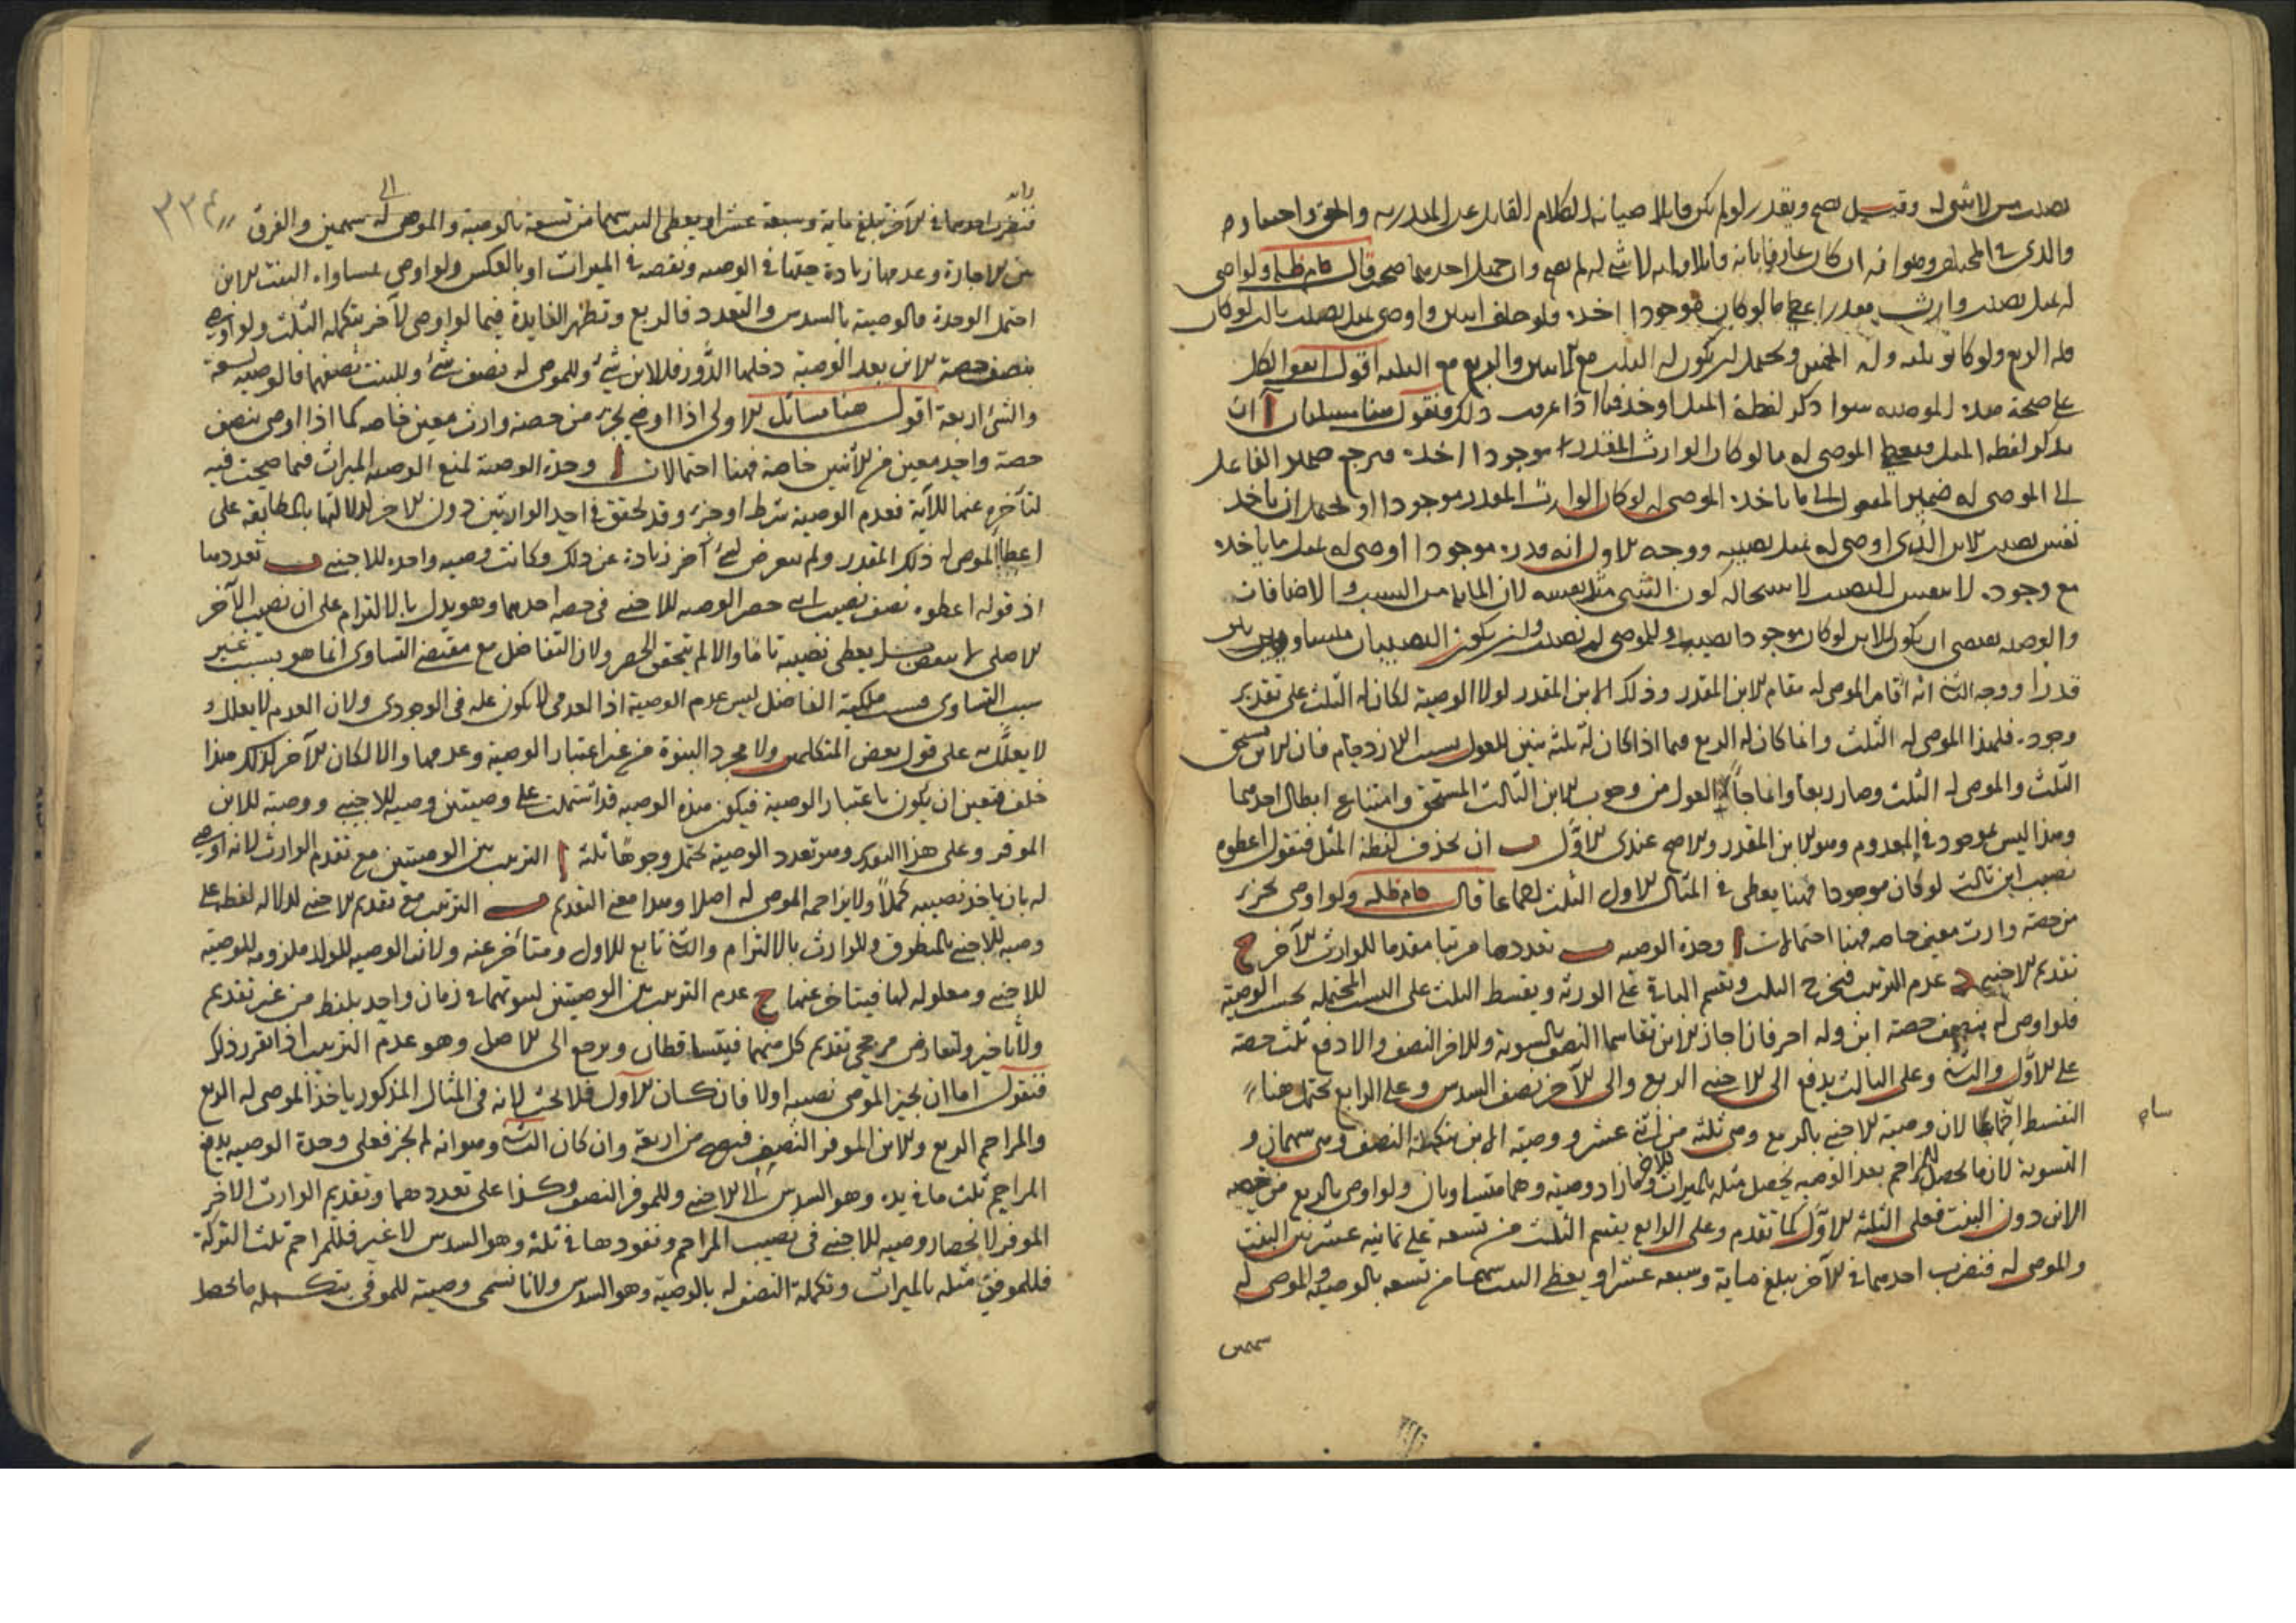 نصيب من لا شئ له وقيل يصح ويقدر لو لم يكن قاتلا صيانة لكلام العاقل عن الهذرية والحق اختيار
والدي في المختلف وهو انه ان كان عارفا بانه قاتل وانه لا شئ له لم يصح وان جهل احدهما صح قال دام ظله ولو اوصى
له بمثل نصيب وارث مقدر اعطي ما لو كان موجودا اخذه فلو خلف ابنين واوصى بمثل نصيب ثالث لو كان
فله الربع ولو كانوا ثلثة وله الخمس ويحتمل ان يكون له الثلث مع الابنين والربع مع الثلثة اقول اتفق الكل
على صحة هذه الوصيه سوا ذكر لفظة المثل او حذفها اذا عرفت ذلك فنقول هنا مسئلتان ا ان
يذكر لفظه المثل فيعطى الموصى له ما لو كان الوارث المقدر موجودا اخذه فيرجع ضمير الفاعل
الى الموصى له ضمير المفعول الى ما ياخذه الموصى له لو كان الوارث المقدر موجودا او يحتمل ان ياخذ
نفس نصيب الابن الذي اوصى له بمثل نصيبه ووجه الاول انه قدره موجودا اوصى له بمثل ما ياخذه
مع وجوده لا بنفس النصيب لاستحالة كون الشئ مثل نفسه لان المماثلة من النسب والاضافات
والوصيه تقتضي ان يكون للابن لو كان موجودا نصيب وللموصى له نصيب وان يكون النصيبان متساويين
قدرا ووجه الثاني انه اقام الموصى له مقام الابن المقدر وذلك الابن المقدر لولا الوصية لكان له الثلث على تقدير
وجوده فلهذا الموصى له الثلث وانما كان له الربع فيما اذا كان له ثلثة بنين للعول بسبب الازدحام فان الابن يستحق
الثلث والموصى له الثلث وصار ربعا وانما جاء العول من وجوب الابن الثالث المستحق وامتناع ابطال احدهما
وهذا ليس بموجود في المعدوم وهو الابن المقدر والاصح عندي الاول ب ان يحذف لفظة المثل فنقول اعطوه
نصيب ابن ثالث لو كان موجودا فهنا يعطى في المثال الاول الثلث اجماعا قال دام ظله ولو اوصى بجزء
من حصة وارث معين خاصه فهنا احتمالات ا وحدة الوصيه ب تعددها مرتبا مقدما للوارث الآخر ج
تقديم الاجنبي د عدم الترتيب فيخرج الثلث ويقسم الباقي على الورثة ويقسط الثلث على النسب المحتملة بحسب الوصية
فلو اوصى له بنصف حصة ابن وله آخر فان اجاز الابن تقاسما النصف بالسوية وللاخر النصف والا دفع ثلث حصة
على الاول والثاني وعلى الثالث يدفع الى الاجنبي الربع والى الآخر نصف السدس وعلى الرابع يحتمل هنا
التقسيط اجماعا لان وصية الاجنبي بالربع وهي ثلثة من اثني عشر ووصية الابن بتكملة النصف وهي سهمان و
التسوية لان ما يحصل للمزاحم بعد الوصيه يحصل مثله بالميراث للاخر فما زاد وصية وهما متساويان ولو اوصى بالربع من حصة
الابن دون البنت فعلى الثلثه الاول كما تقدم وعلى الرابع يقسم الثلث من تسعة على ثمانية عشر بين البنت
والموصى له فنضرب احدهما في الآخر يبلغ مايه وسبعه عشر او يعطى البنت سهما من تسعه بالوصية والموصى له
سهمين
فنضرب احدهما في الآخر تبلغ ماية وسبعة عشر او يعطى البنت سهما من تسعة بالوصية والموصى له سهمين والفرق
٣٣٤
بين الاجازة وعدمها زيادة حقها في الوصيه ونقصه في الميراث او بالعكس ولو اوصى بمساواه البنت للابن
احتمل الوحدة فالوصية بالسدس والتعدد فالربع وتظهر الفايدة فيما لو اوصى لآخر بتكملة الثلث ولو اوصى
بنصف حصة الابن بعد الوصية دخلها الدور فللابن شئ وللموصى له نصف شئ وللبنت نصفها فالوصية تسعة
والشئ اربعة اقول هنا مسائل الاولى اذا اوصى بجزء من حصة وارث معين خاصه كما اذا اوصى بنصف
حصة واحد معين من الاثنين خاصة فهنا احتمالات ا وحدة الوصية لمنع الوصيه الميراث فيما صحت فيه
لتأخره عنها للآية فعدم الوصية شرط او جزء وقد تحقق في احد الوارثين دون الاخر لدلالتها بالمطابقه على
اعطا الموصى له ذلك المقدر ولم يتعرض لشئ آخر زيادة عن ذلك فكانت وصيه واحده للاجنبي ب تعددها
اذ قوله اعطوه نصف نصيب ابني حصر الوصيه للاجنبي في حصه احدهما وهو يدل بالالتزام على ان نصيب الآخر
الاصلي لا ينقص بل يعطى نصيبه تاما والا لم يتحقق الحصر ولان التفاضل مع مقتضى التساوي انما هو بسبب غير
سبب التساوي فسبب ملكية الفاضل ليس عدم الوصية اذ العدمي لا يكون علة في الوجودي ولان العدم لا يعلل و
لا يعلل به على قول بعض المتكلمين ولا مجرد البنوة من غير اعتبار الوصية وعدمها والا لكان للآخر كذلك هذا
خلف فتعين ان يكون باعتبار الوصية فيكون هذه الوصيه قد اشتملت على وصيتين وصيه للاجنبي ووصية للابن
الموفر وعلى هذا التقدير وهو تعدد الوصية يحتمل وجوها ثلثة ا الترتيب بين الوصيتين مع تقدم الوارث لانه اوصى
له بان ياخذ نصيبه كملا ولا يزاحمه الموصى له اصلا وهذا معنى التقديم ب الترتيب مع تقديم الاجنبي لدلاله لفظه على
وصيه للاجنبي بالمنطوق وللوارث بالالتزام والثاني تابع للاول ومتأخر عنه ولان الوصيه للولد ملزومه للوصية
للاجنبي ومعلوله لها فيتاخر عنها ج عدم الترتيب بين الوصيتين لثبوتهما في زمان واحد بلفظ من غير تقديم
ولا تاخير ولتعارض مرجحي تقديم كل منهما فيتساقطان ويرجع الى الاصل وهو عدم الترتيب اذا تقرر ذلك
فنقول اما ان يجيز الموصى نصيبه اولا فان كان الاول فلا بحث لانه في المثال المذكور ياخذ الموصى له الربع
والمزاحم الربع وللابن الموفر النصف فيصح من اربعة وان كان الثاني وهو انه لم يجز فعلى وحدة الوصيه يدفع
المزاحم ثلث ما في يده وهو السدس الى الاجنبي وللموفر النصف وكذا على تعددهما وتقديم الوارث الاخر
الموفر لانحصار وصيه للاجنبي في نصيب المزاحم ونفوذها في ثلثه وهو السدس لا غير فللمزاحم ثلث التركة
فللموفر مثله بالميراث وتكملة النصف له بالوصية وهو السدس ولانا نسمي وصية للموفر بتكميله ما يحصل